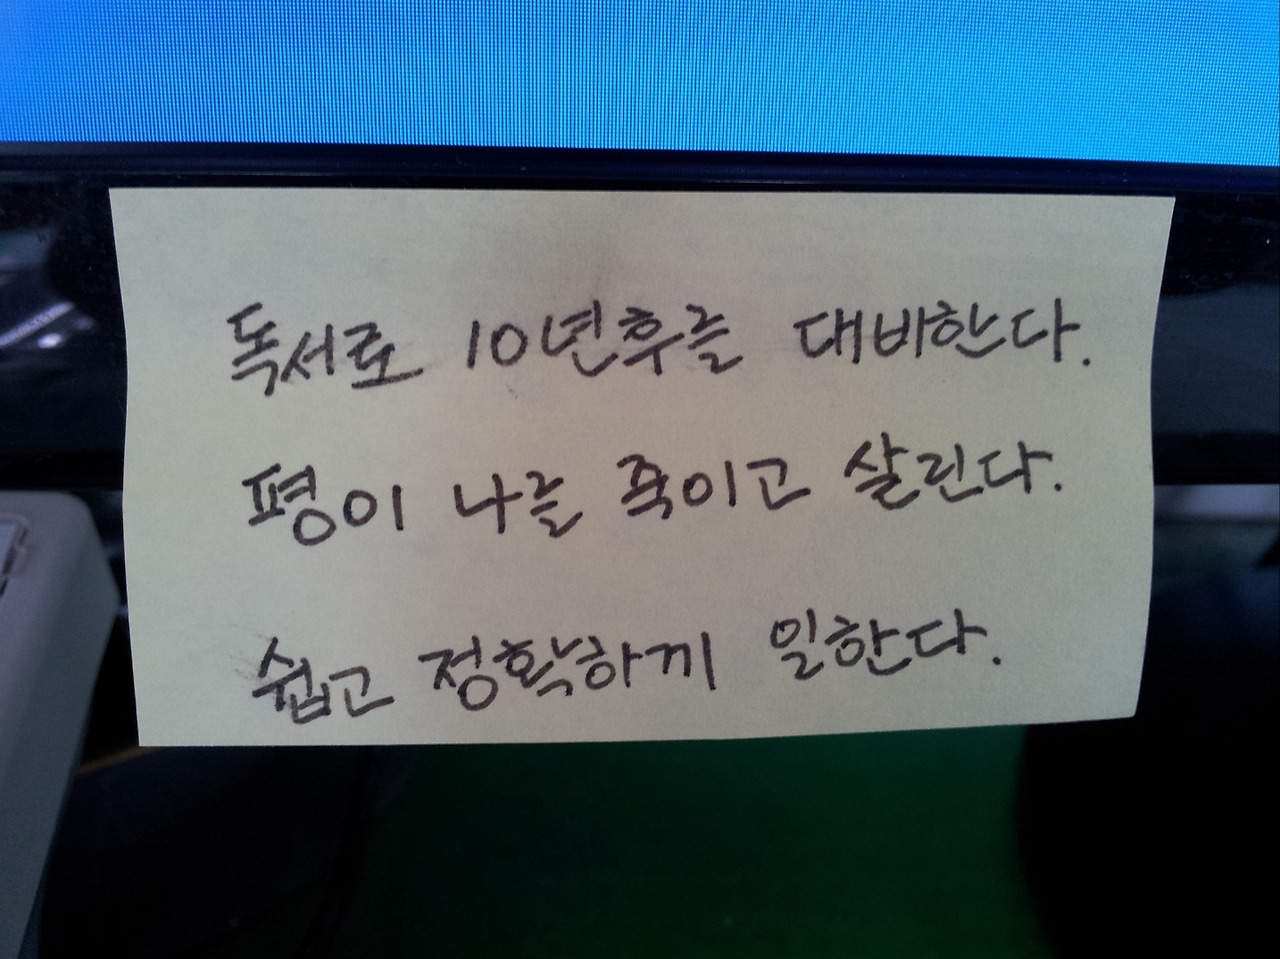 독서로 10년후를 대비한다.
평이 나를 죽이고 살린다.
쉽고 정확하게 일한다.